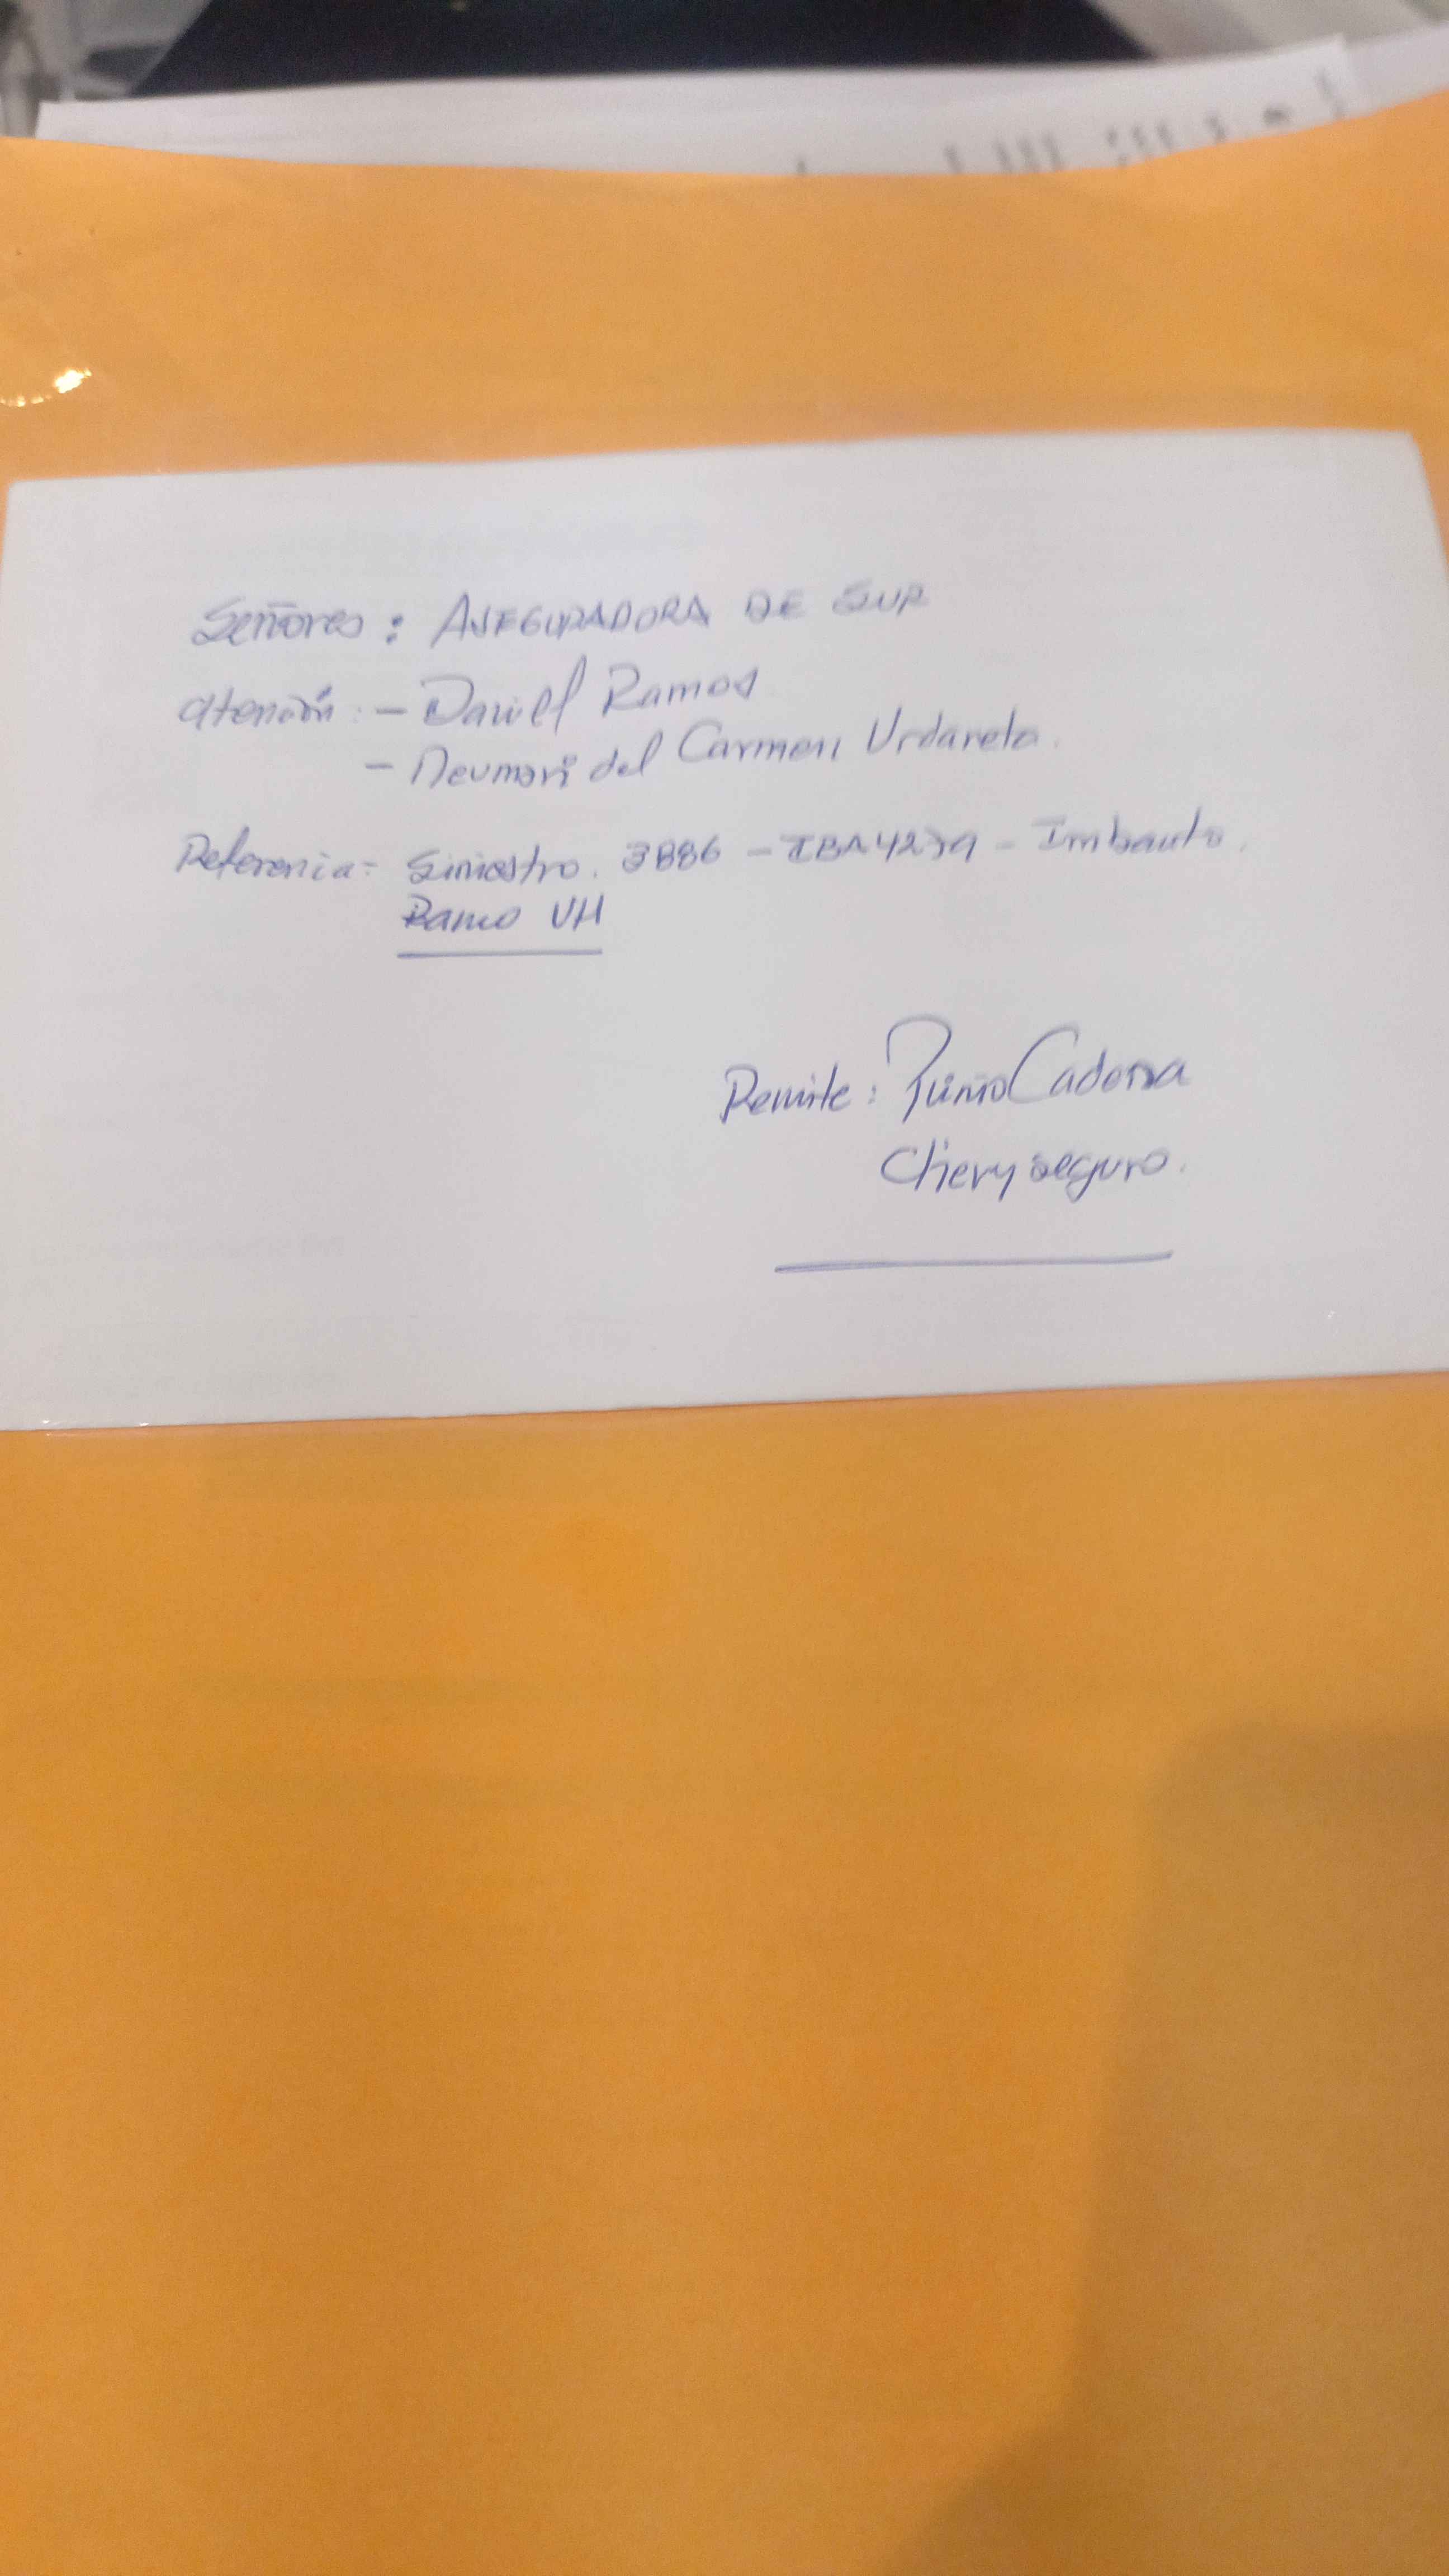 Señores: ASEGURADORA DE SUR
Atención: - Daniel Ramos
- Neumari del Carmen Urdaneta.
Referencia: Siniestro. 3886 - IBA4279 - Imbauto.
Ramo VH
Remite: Cadena
Chevyseguro.